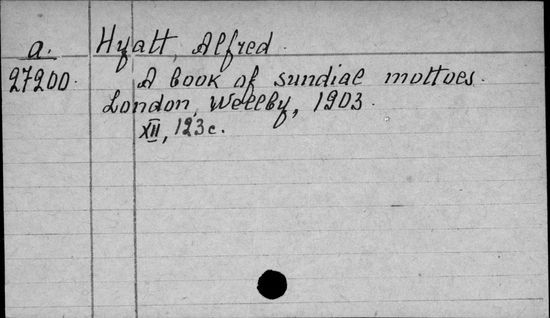 a. Hyatt, Alfred.
27200. A book of sundial mottoes.
London, Wellby, 1903.
XII, 123c.